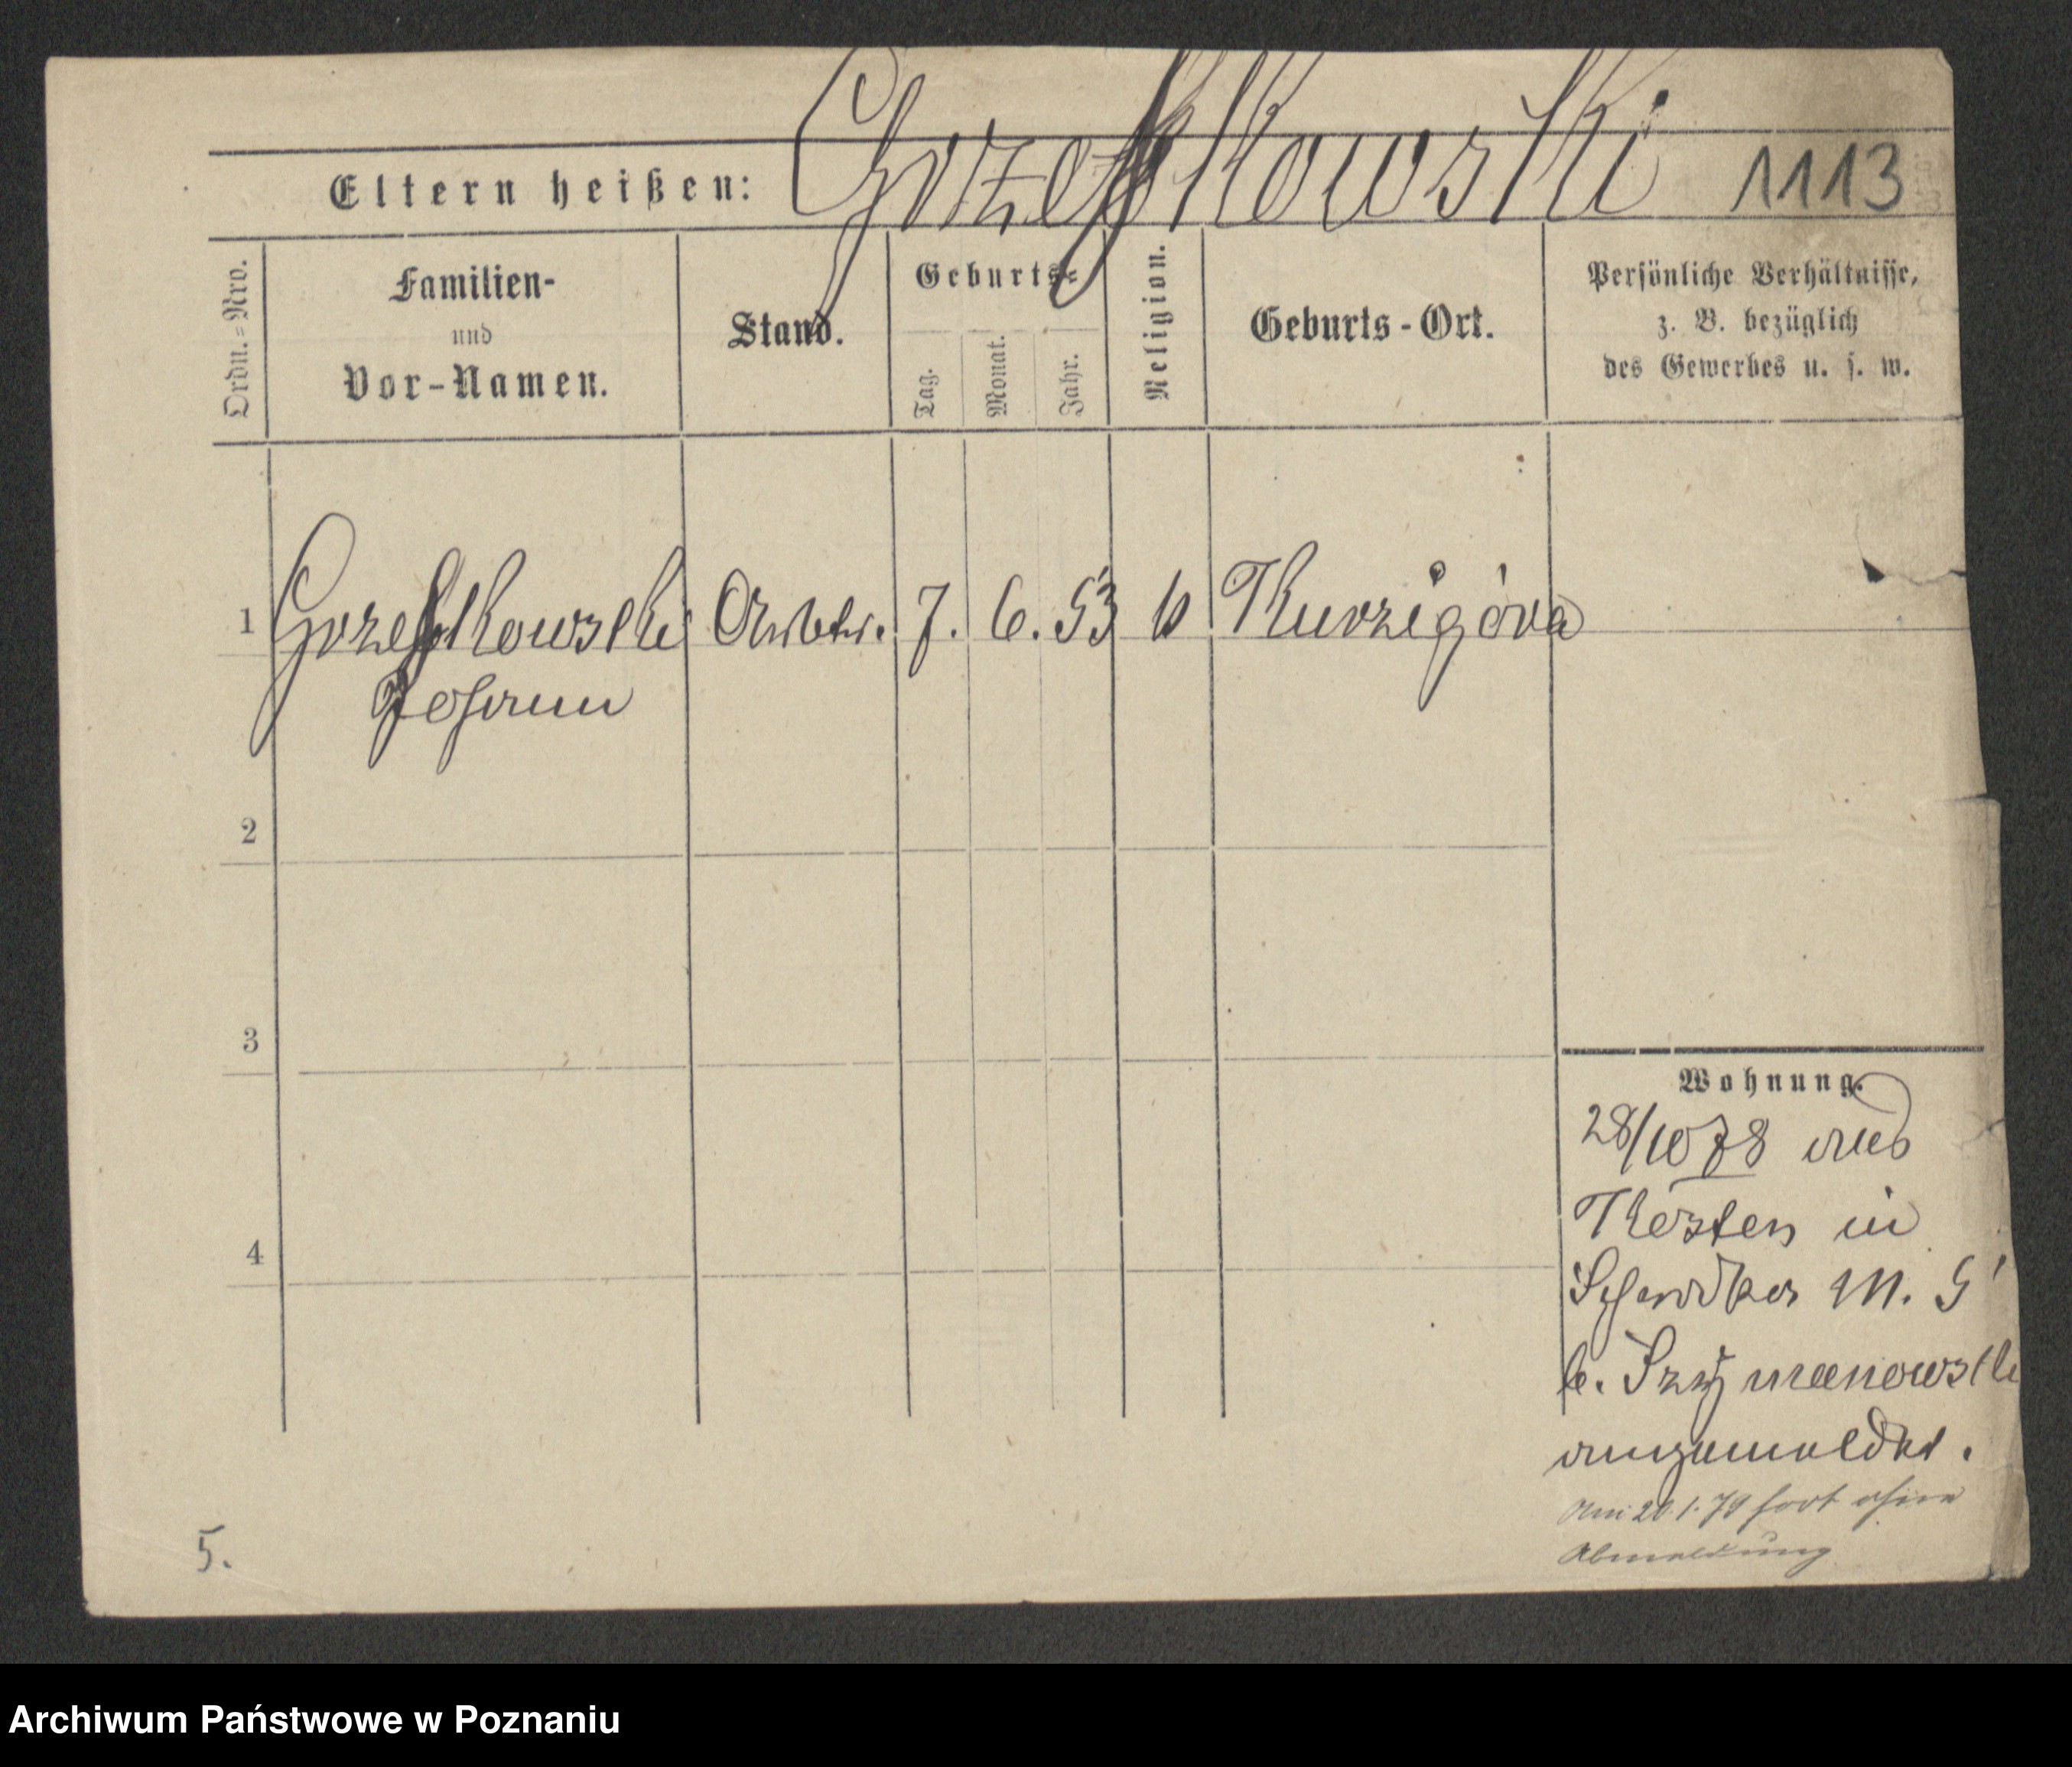 Eltern heißen: Grzeszkowski 1113
Ordn.=Nro.
Familien-
und
Vor-Namen.
Stand.
Geburts=
Tag.
Monat.
Jahr.
Religion.
Geburts-Ort.
Persönliche Verhältnisse,
z. B. bezüglich
des Gewerbes u. s. w.
1 Arbtr. 7. 6. 53 k Kurzigóra
Johann
2
3
4
Wohnung.
28/10 78 aus
Kosten in
M. 5
b. Szymanowski
angemeldet.
Am 20.1.79 fort ohne
Abmeldung
5.
Archiwum Państwowe w Poznaniu